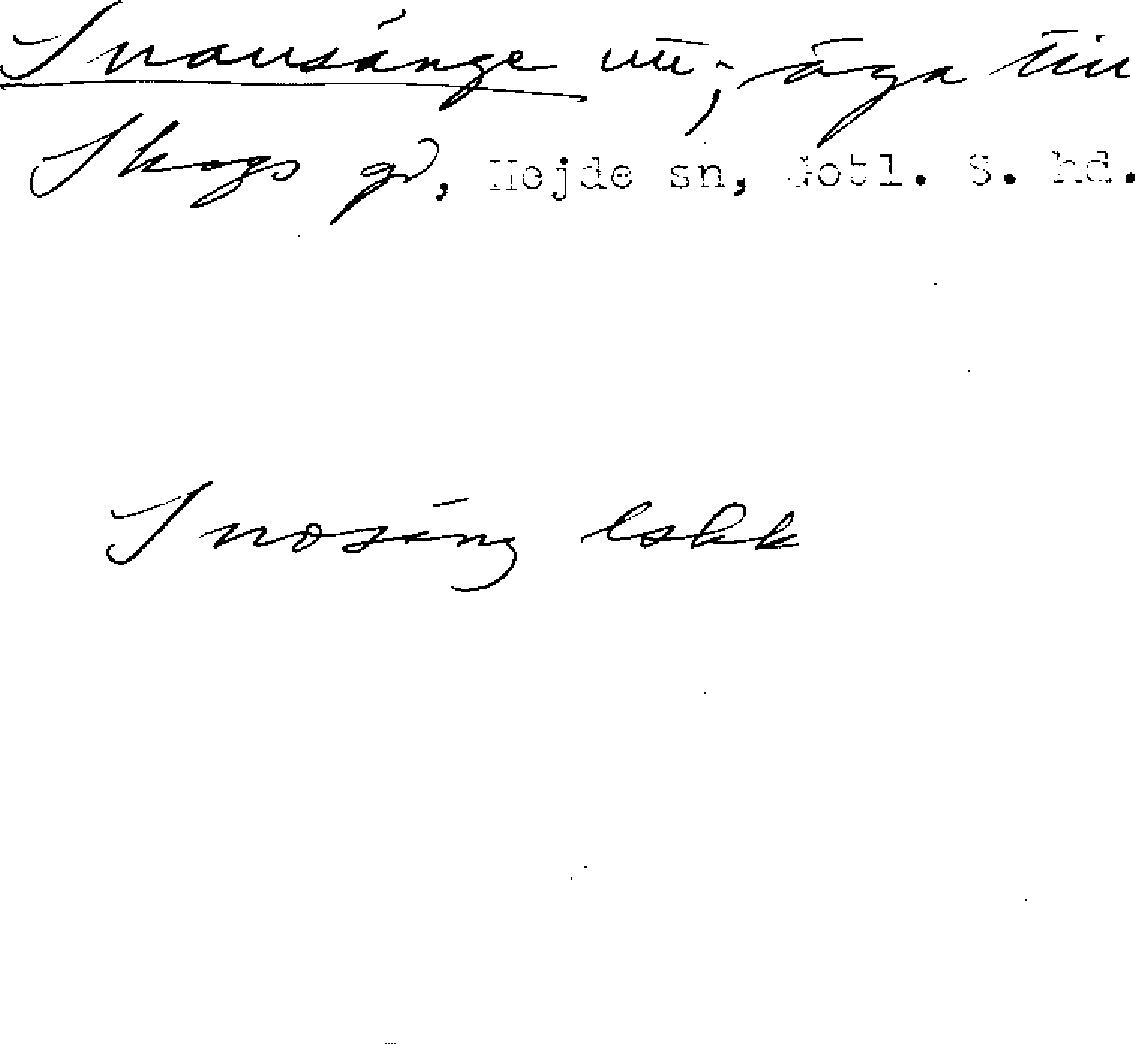 Snausänge äga till
Skogs gd, Hejde sn, Gotl. S. hd.
Snosäng lskk